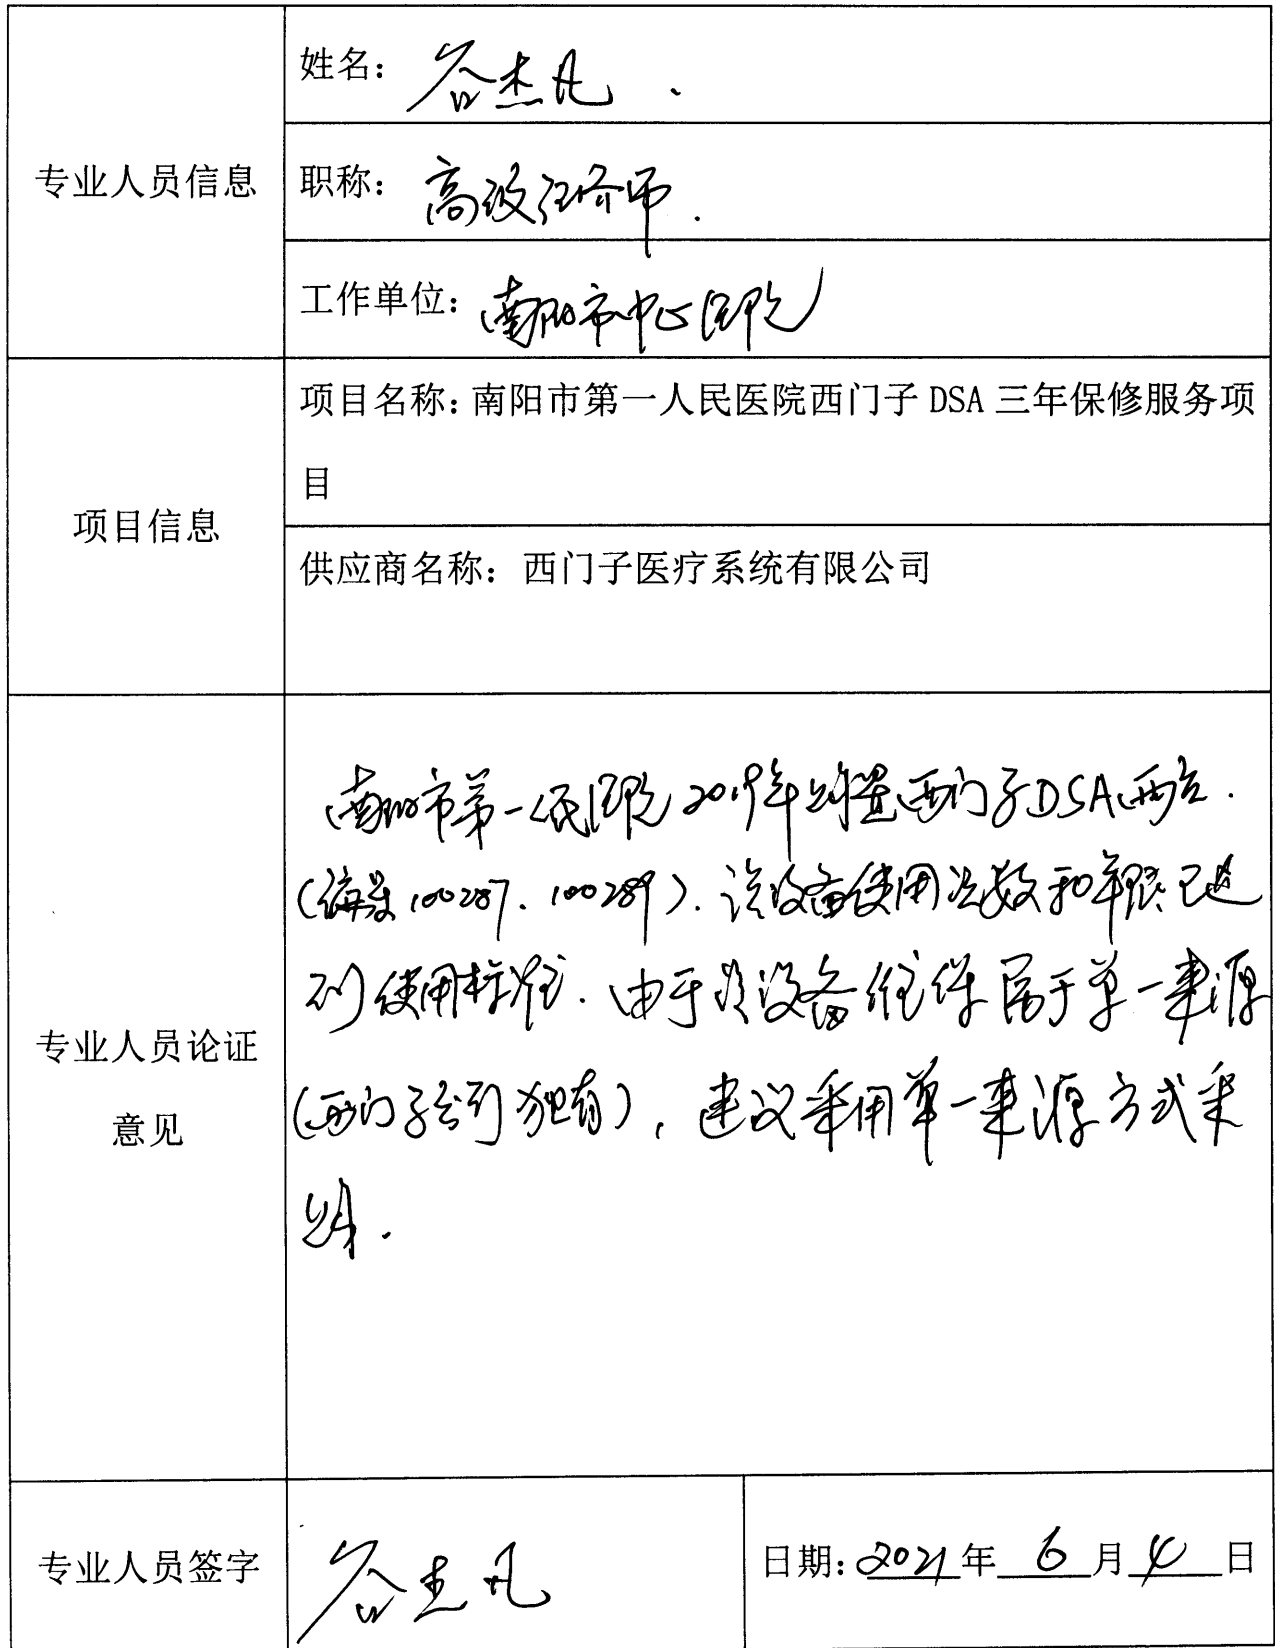 姓名：谷杰凡.
专业人员信息
职称：高级经济师.
工作单位：南阳市中心医院
项目名称：南阳市第一人民医院西门子 DSA 三年保修服务项
目
项目信息
供应商名称：西门子医疗系统有限公司
南阳市第一人民医院2019年购置西门子DSA两台.
(编号100287、100289).该设备使用次数和年限已达
到使用标准.由于该设备维保属于单一来源
专业人员论证
(西门子公司独有),建议采用单一来源方式采
意见
购.
专业人员签字
谷杰凡
日期：2021年 6 月 4 日